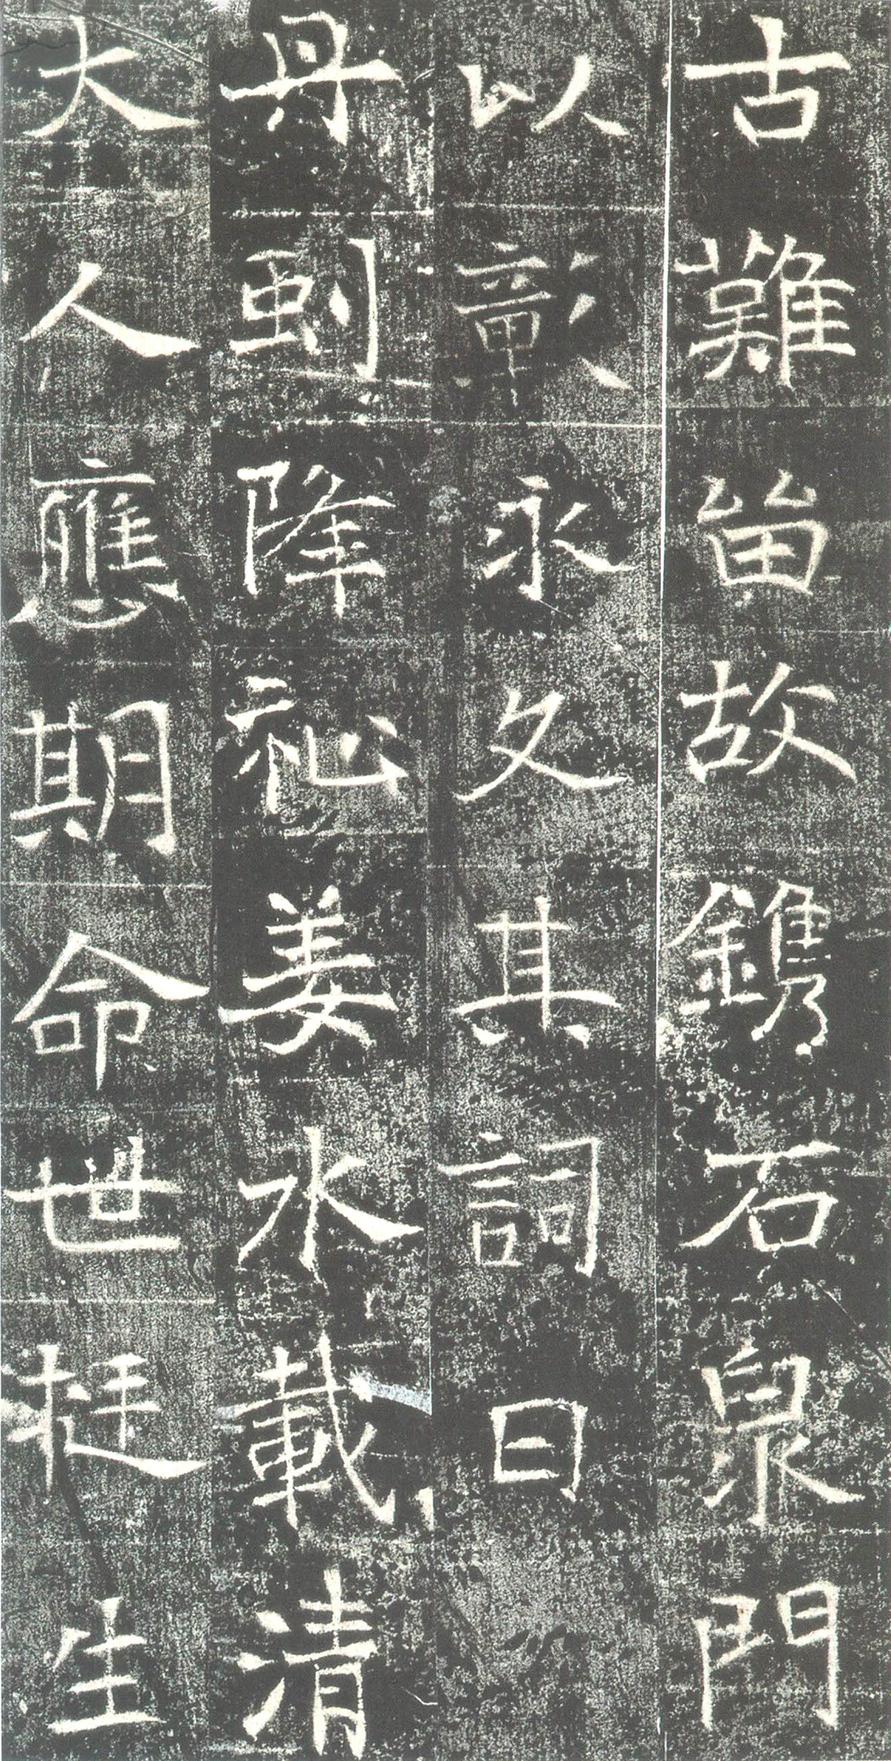 古難留故鐫石泉門
以彰永久其詞曰
丹降祉姜水載清
大人應期命世挺生